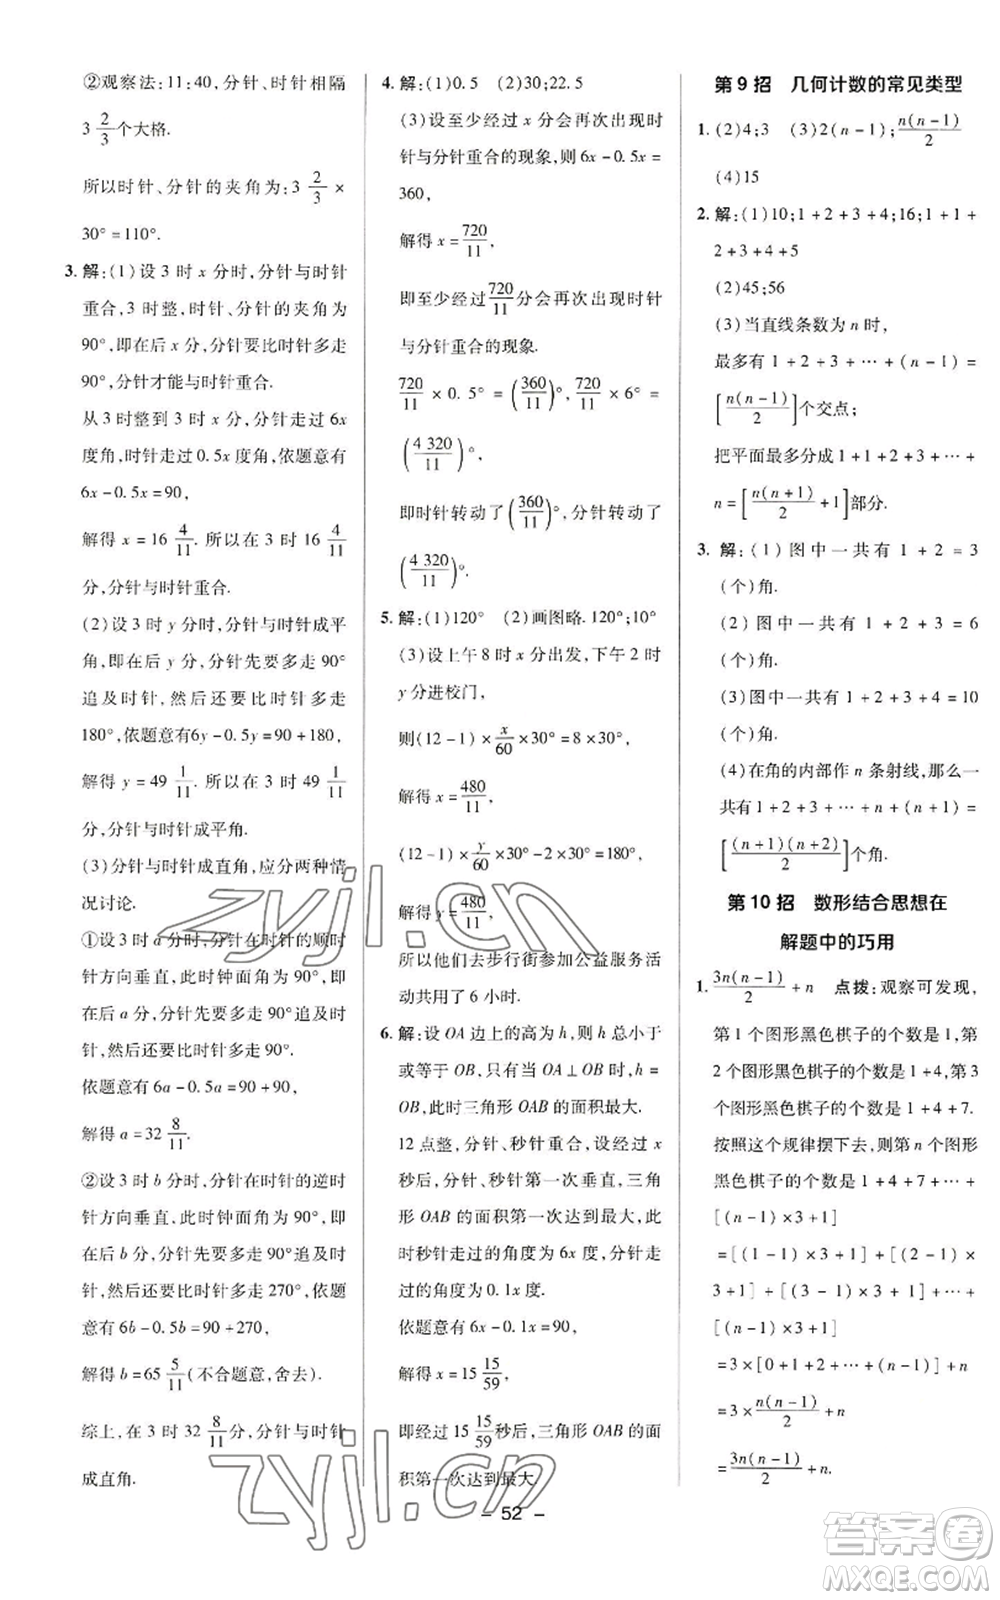 ②观察法:11:40,分针、时针相隔
3 2/3个大格.
所以时针、分针的夹角为:3 2/3 ×
30°=110°.
3. 解:(1)设3时x分时,分针与时针
重合,3时整,时针、分针的夹角为
90°,即在后x分,分针要比时针多走
90°,分针才能与时针重合.
从3时整到3时x分,分针走过6x
度角,时针走过0.5x度角,依题意有
6x-0.5x=90,
解得x=16 4/11. 所以在3时16 4/11
分,分针与时针重合.
(2)设3时y分时,分针与时针成平
角,即在后y分,分针先要多走90°
追及时针,然后还要比时针多走
180°,依题意有6y-0.5y=90+180,
解得y=49 1/11. 所以在3时49 1/11
分,分针与时针成平角.
(3)分针与时针成直角,应分两种情
况讨论.
①设3时a分时,分针在时针的顺时
针方向垂直,此时钟面角为90°,即
在后a分,分针先要多走90°追及时
针,然后还要比时针多走90°.
依题意有6a-0.5a=90+90,
解得a=32 8/11.
②设3时b分时,分针在时针的逆时
针方向垂直,此时钟面角为90°,即
在后b分,分针先要多走90°追及时
针,然后还要比时针多走270°,依题
意有6b-0.5b=90+270,
解得b=65 5/11(不合题意,舍去).
综上,在3时32 8/11分,分针与时针
成直角.
4. 解:(1)0.5 (2)30;22.5
(3)设至少经过x分会再次出现时
针与分针重合的现象,则6x-0.5x=
360,
解得x=720/11,
即至少经过720/11分会再次出现时针
与分针重合的现象.
720/11×0.5°=(360/11)°,720/11×6°=
(4 320/11)°,
即时针转动了(360/11)°,分针转动了
(4 320/11)°.
5. 解:(1)120° (2)画图略.120°;10°
(3)设上午8时x分出发,下午2时
y分进校门,
则(12-1)×x/60×30°=8×30°,
解得x=480/11,
(12-1)×y/60×30°-2×30°=180°,
解得y=480/11,
所以他们去步行街参加公益服务活
动共用了6小时.
6. 解:设OA边上的高为h,则h总小于
或等于OB,只有当OA⊥OB时,h=
OB,此时三角形OAB的面积最大.
12点整,分针、秒针重合,设经过x
秒后,分针与秒针第一次垂直,三角
形OAB的面积第一次达到最大,此
时秒针走过的角度为6x度,分针走
过的角度为0.1x度.
依题意有6x-0.1x=90,
解得x=15 15/59,
即经过15 15/59秒后,三角形OAB的面
积第一次达到最大.
第9招 几何计数的常见类型
1. (2)4;3 (3)2(n-1);n(n-1)/2
(4)15
2. 解:(1)10;1+2+3+4;16;1+1+
2+3+4+5
(2)45;56
(3)当直线条数为n时,
最多有1+2+3+⋯+(n-1)=
[n(n-1)/2]个交点;
把平面最多分成1+1+2+3+⋯+
n=[n(n+1)/2+1]部分.
3. 解:(1)图中一共有1+2=3
(个)角.
(2)图中一共有1+2+3=6
(个)角.
(3)图中一共有1+2+3+4=10
(个)角.
(4)在角的内部作n条射线,那么一
共有1+2+3+⋯+n+(n+1)=
[(n+1)(n+2)/2]个角.
第10招 数形结合思想在
解题中的巧用
1. 3n(n-1)/2+n 点拨:观察可发现,
第1个图形黑色棋子的个数是1,第
2个图形黑色棋子的个数是1+4,第3
个图形黑色棋子的个数是1+4+7.
按照这个规律摆下去,则第n个图形
黑色棋子的个数是1+4+7+⋯+
[(n-1)×3+1]
=[(1-1)×3+1]+[(2-1)×
3+1]+[(3-1)×3+1]+⋯+
[(n-1)×3+1]
=3×[0+1+2+⋯+(n-1)]+n
=3×n(n-1)/2+n
=3n(n-1)/2+n.
- 52 -
zyjl.cn
zyjl.cn
答案圈
MXQE.COM